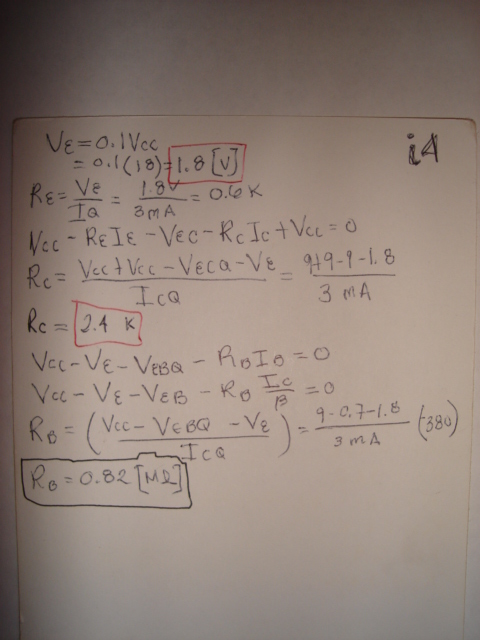 i4
VE = 0.1Vcc
= 0.1(18) = 1.8 [V]
RE = VE/IQ = 1.8V/3mA = 0.6 K
Vcc - REIE - VEC - RCIC + Vcc = 0
RC = (Vcc + Vcc - VECQ - VE)/ICQ = (9+9-9-1.8)/3 mA
RC = 2.4 K
Vcc - VE - VEBQ - RBIB = 0
Vcc - VE - VEB - RB IC/β = 0
RB = ((Vcc - VEBQ - VE)/ICQ) = (9-0.7-1.8)/3mA (380)
RB = 0.82 [MΩ]